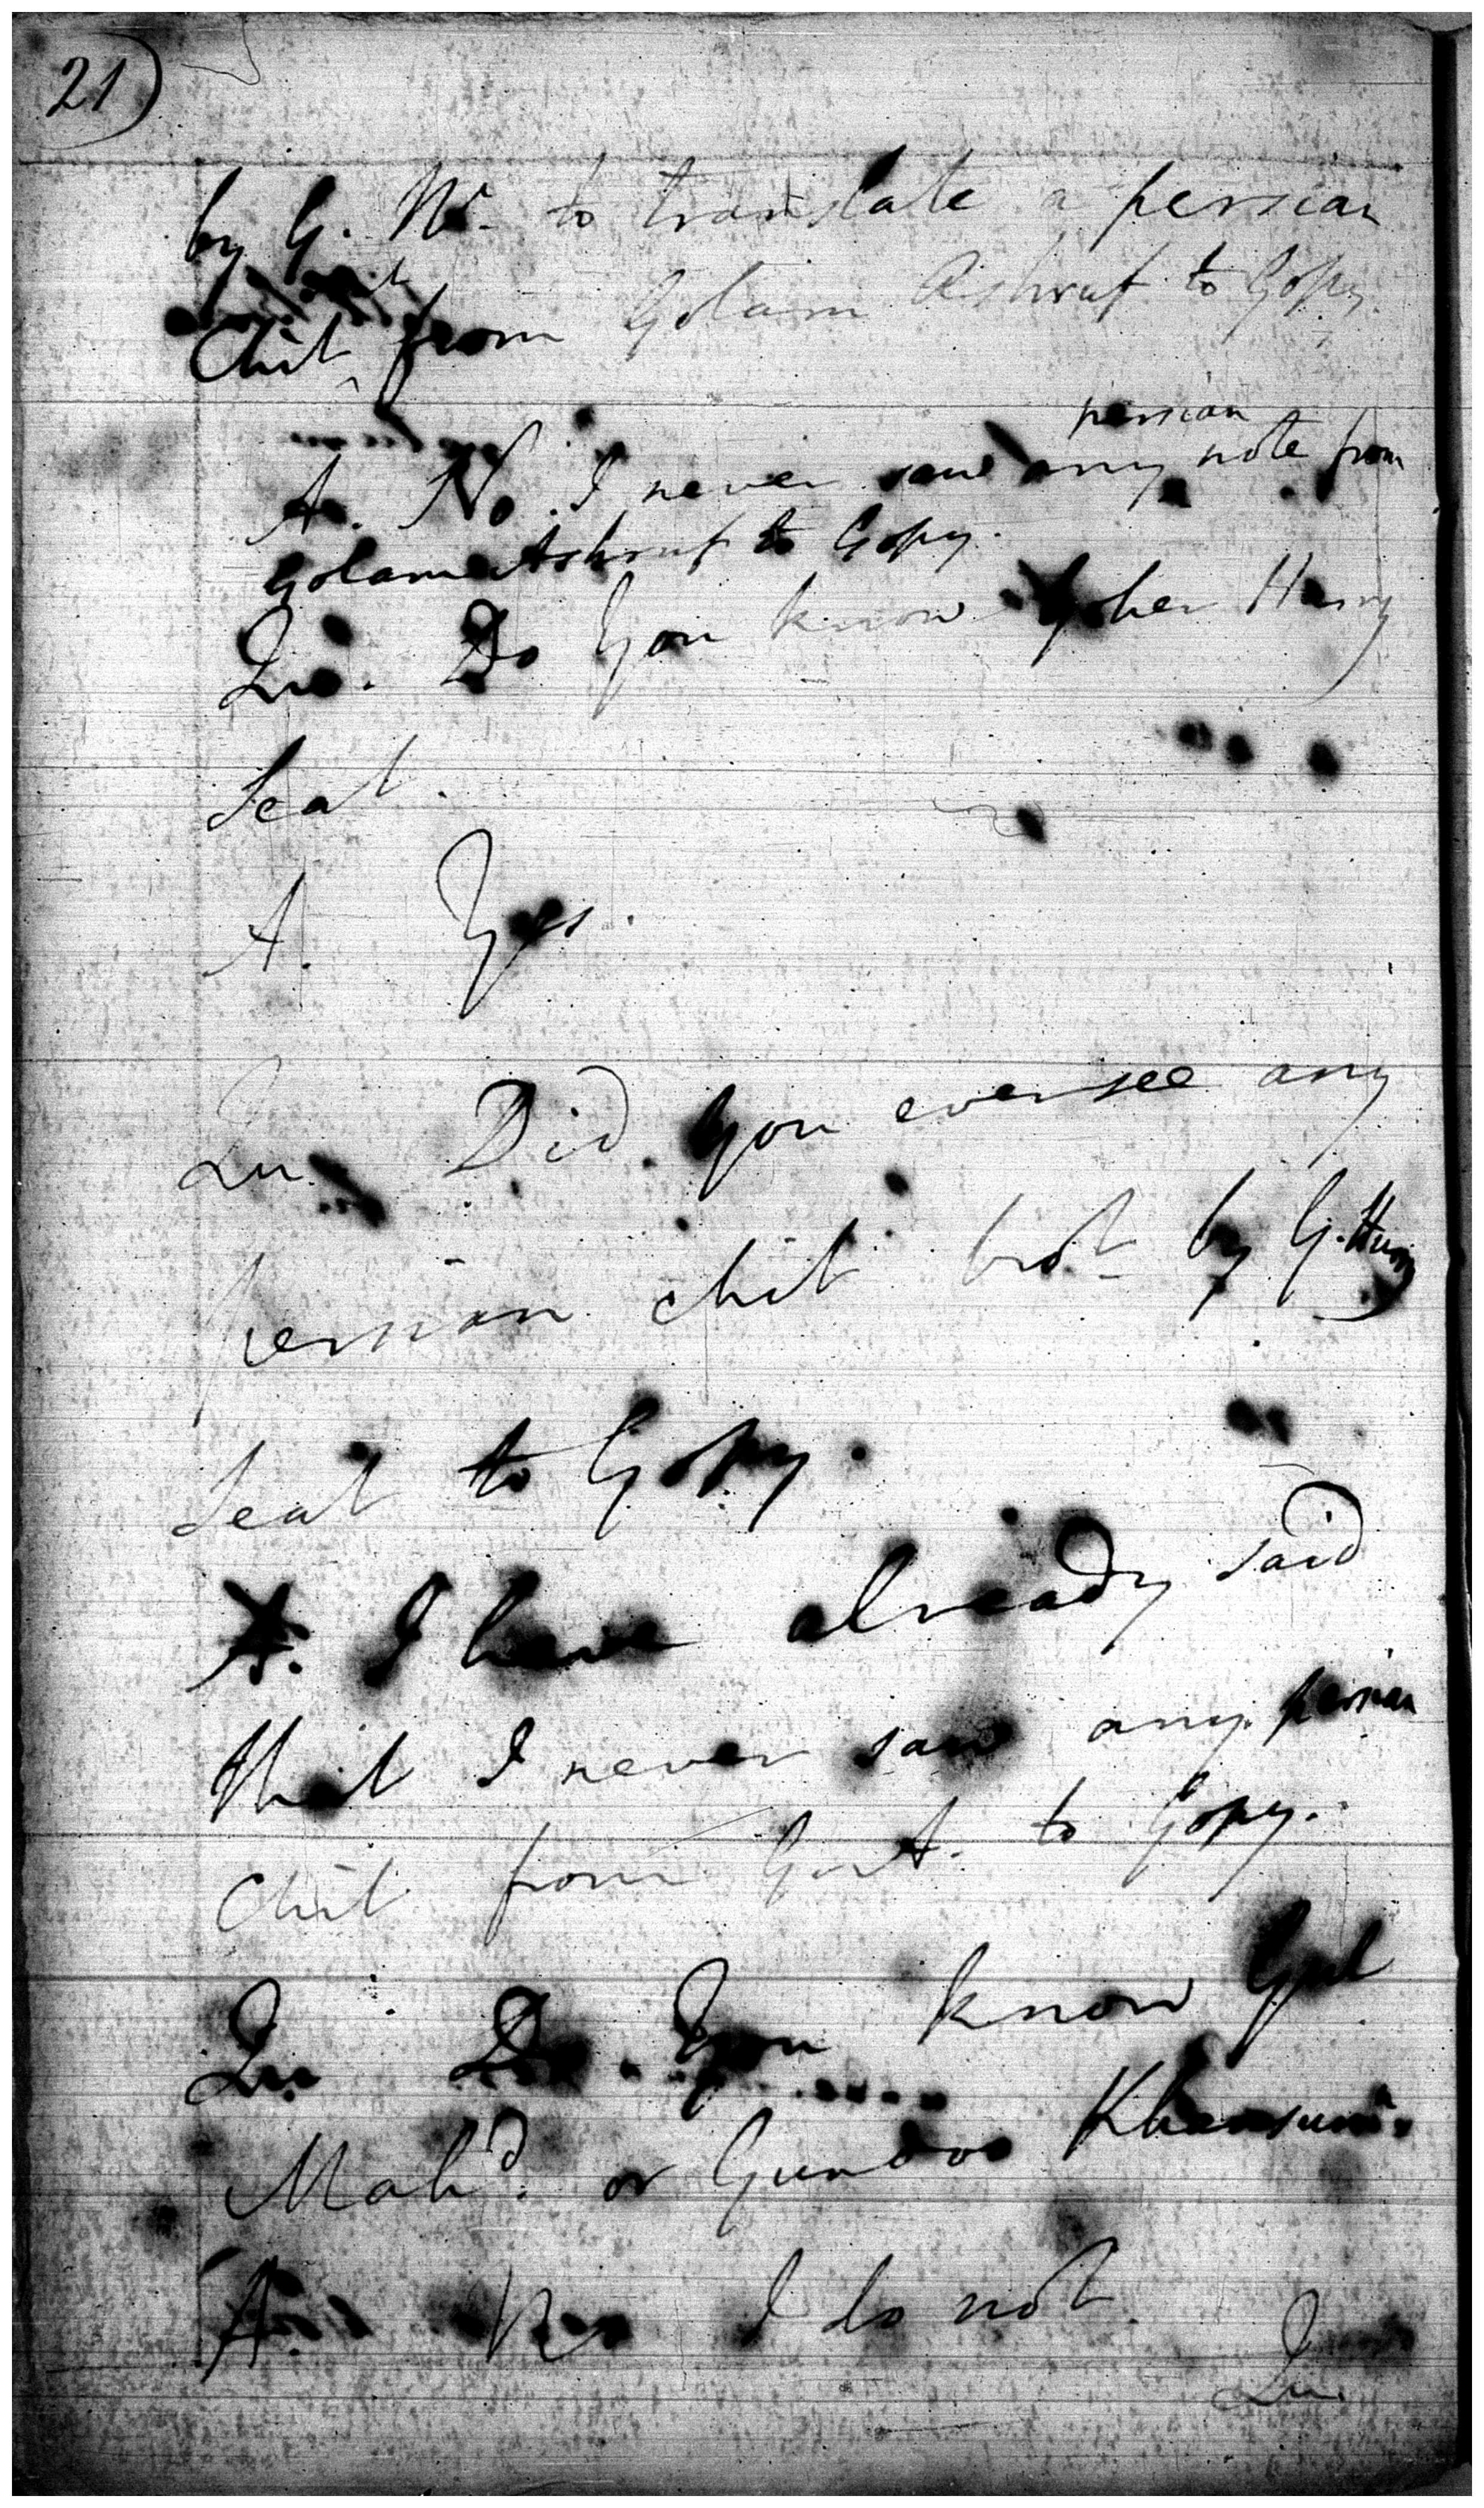 21)
by G. Mr. to translate a persian
Chit from Golam Ashruf to Gopy.
persian
A. No. I never saw any note from
Golam Ashruf to Gopy.
Qu. Do you know Gober Hurry
Seal.
A. Yes.
Qu. Did you ever see any
persian chit brot. by G. Hurry
Seal to Gopy.
A. I have already said
that I never saw any persian
chit from G. A. to Gopy.
Qu Do you know Gul
Mahd. or Gundoo Khansum
A. No I do not.
Qu.